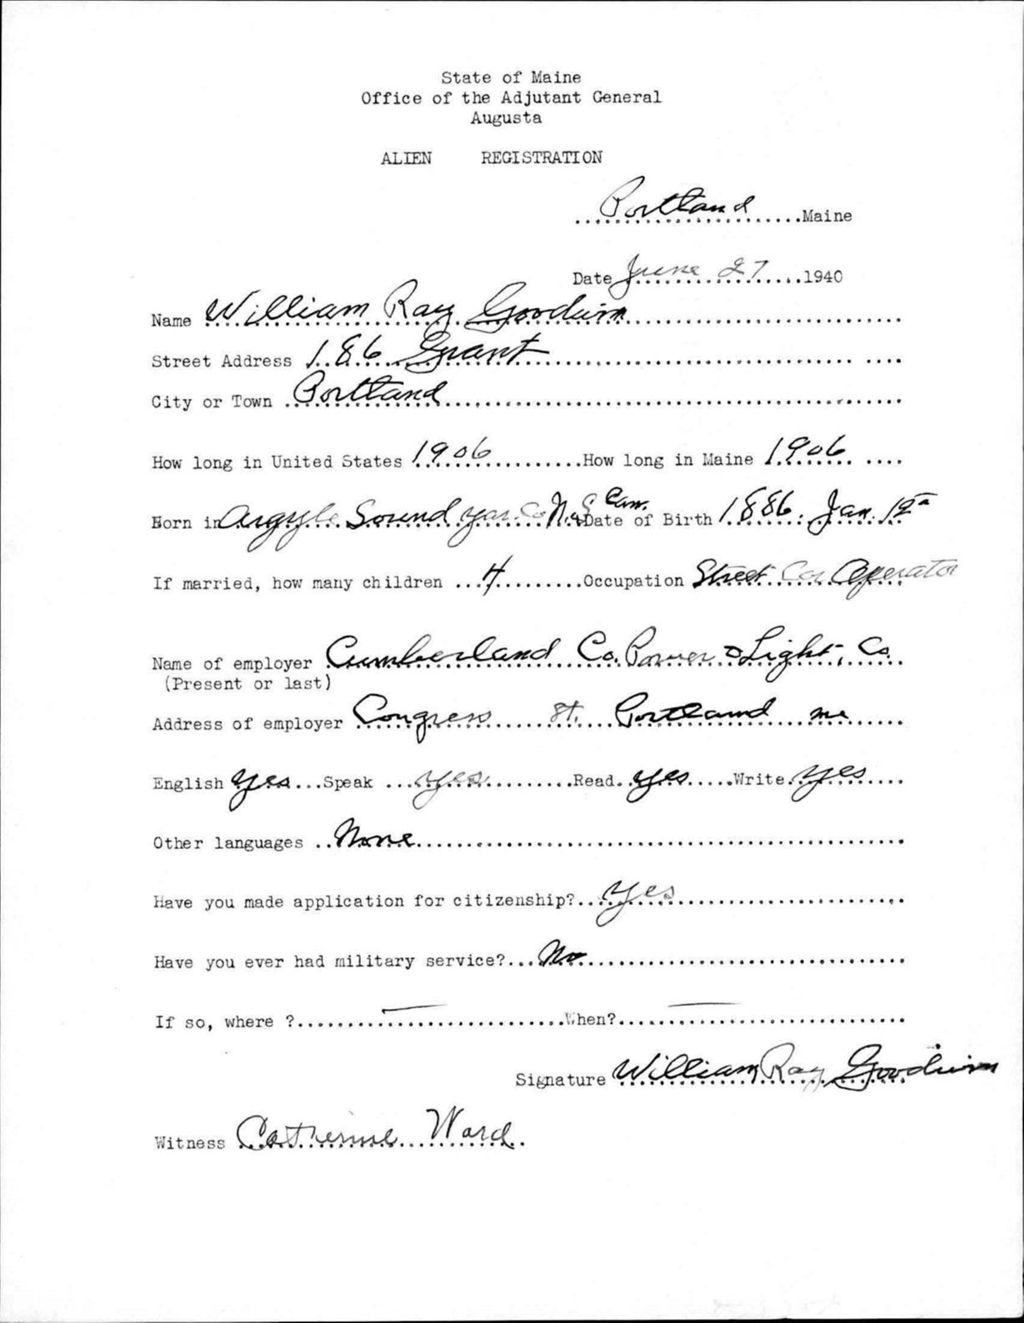 State of Maine
Office of the Adjutant General
Augusta
ALIEN REGISTRATION
Portland Maine
Date June 27 1940
Name William Ray Goodwin
Street Address 186 Grant
City or Town Portland
How long in United States 1906 How long in Maine 1906
Born in Argyle Sound Yar. Co N.S Can. Date of Birth 1886. Jan. 12
If married, how many children 4 Occupation Street Car Operator
Name of employer Cumberland Co. Power & Light, Co.
(Present or last)
Address of employer Congress St. Portland Me
English Yes Speak yes Read yes Write yes
Other languages None
Have you made application for citizenship? Yes
Have you ever had military service? No
If so, where ? — When? —
Signature William Ray Goodwin
Witness Catherine Ward.